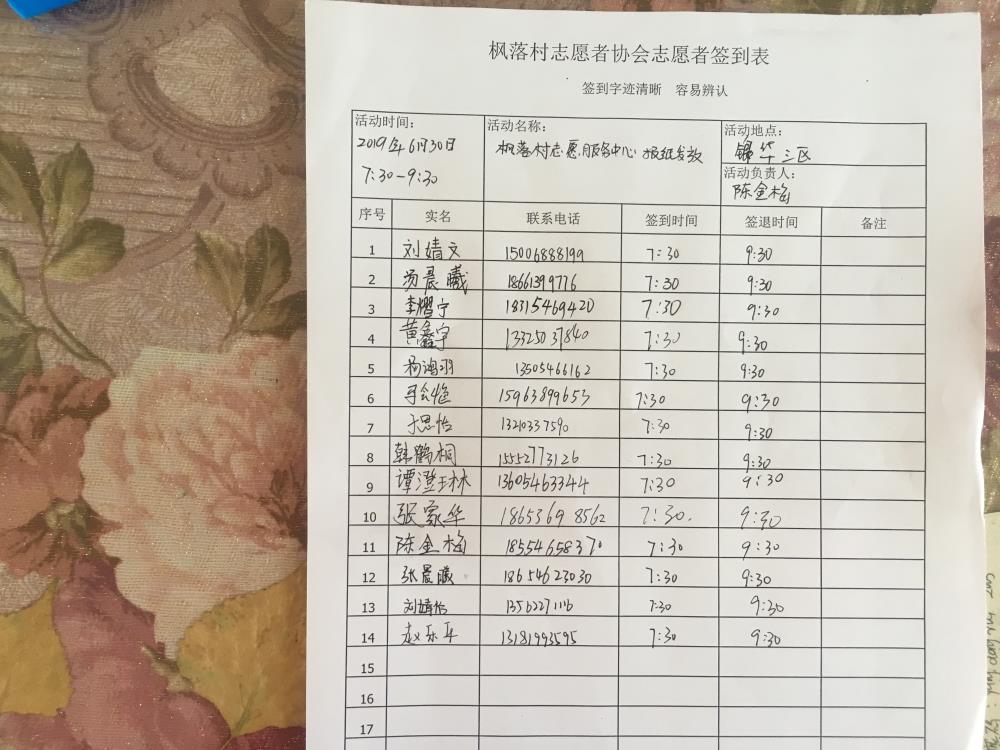 枫落村志愿者协会志愿者签到表
签到字迹清晰 容易辨认
活动时间： 活动名称： 活动地点：
2019年6月30日 枫落村志愿服务中心 报纸发放 锦华三区
7:30-9:30 活动负责人：
陈金梅
序号 实名 联系电话 签到时间 签退时间 备注
1 刘婧文 15006888199 7:30 9:30
2 杨晨曦 18661399776 7:30 9:30
3 李耀宁 18315469420 7:30 9:30
4 黄鑫宇 13325037840 7:30 9:30
5 杨鸿羽 13505466162 7:30 9:30
6 15963899653 7:30 9:30
7 于思怡 13210337590 7:30 9:30
8 韩鹤桐 15552773126 7:30 9:30
9 谭澄玉林 13605463344 7:30 9:30
10 张家华 18653698562 7:30. 9:30
11 陈金梅 18554658370 7:30 9:30
12 张晨曦 18654623030 7:30 9:30
13 刘婧怡 13562271116 7:30 9:30
14 赵乐平 13181993595 7:30 9:30
15
16
17